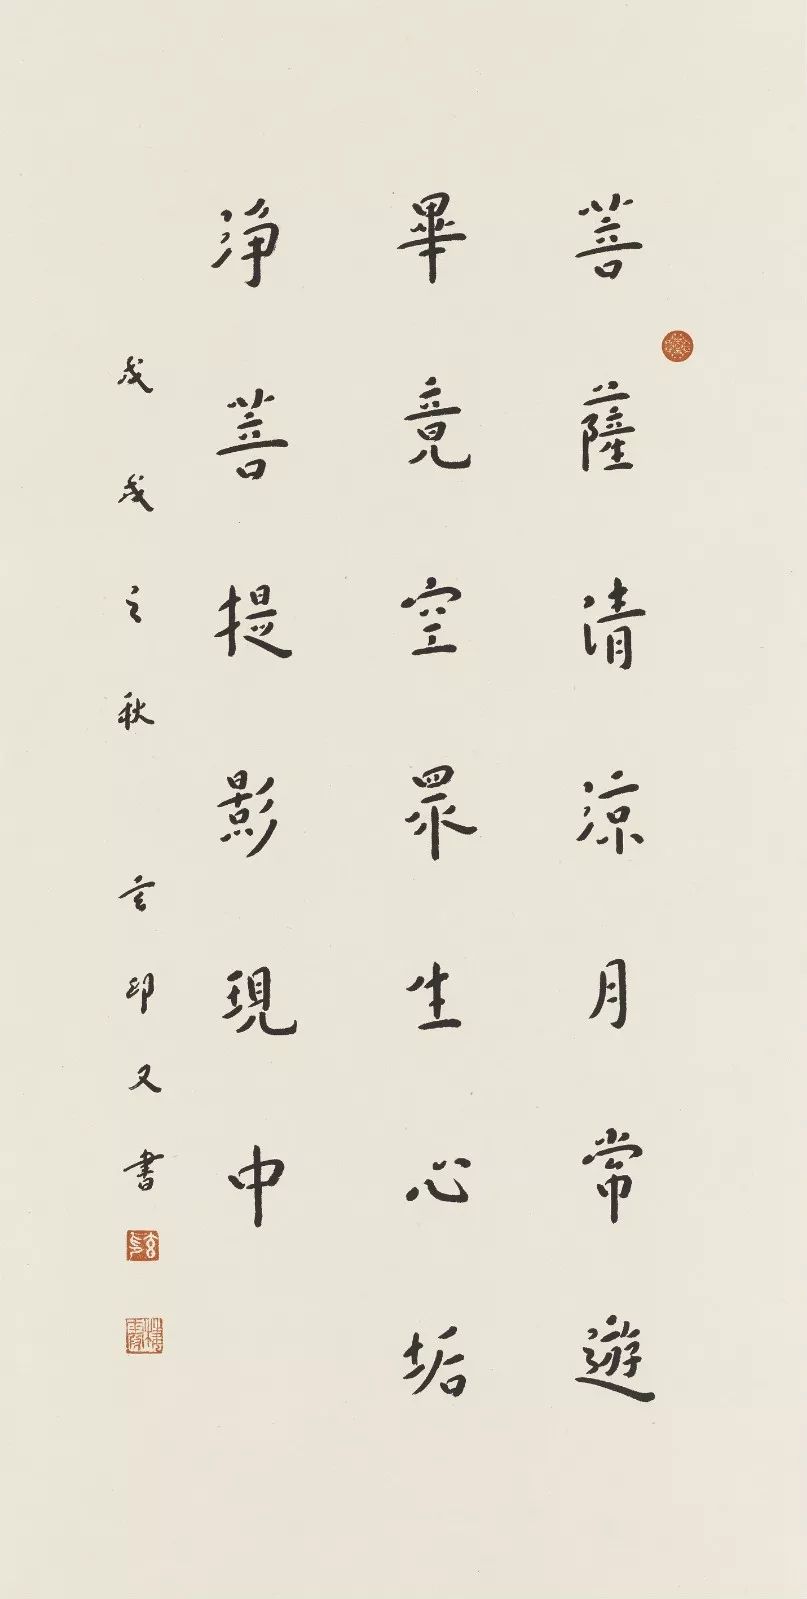 菩薩清涼月常遊
畢竟空眾生心垢
淨菩提影現中
戊戌之秋 玄印又書